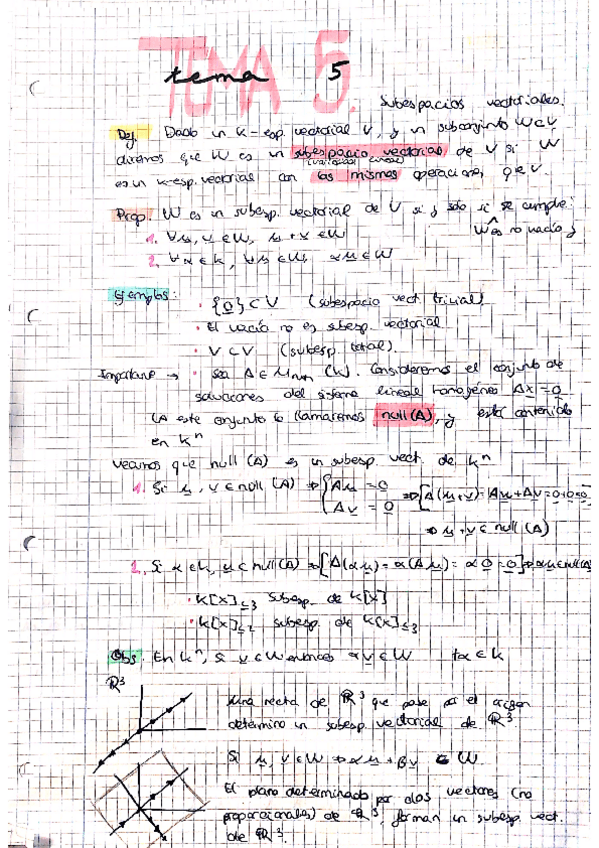 TEMA 5.
tema 5
Subespacios vectoriales.
Def. Dado un K-esp. vectorial V, y un subconjunto W⊂V,
diremos que W es un subespacio vectorial de V si W
es un K-esp. vectorial con las mismas operaciones que V.
Prop. W es un subesp. vectorial de V si y solo si se cumple:
W es no vacío y
1. ∀u, v ∈ W, u + v ∈ W
2. ∀α ∈ K, ∀u ∈ W, αu ∈ W
Ejemplos:
· {0} ⊂ V (subespacio vect. trivial)
· El vacío no es subesp. vectorial
· V ⊂ V (subesp. total).
Importante → · sea A ∈ Mmxn (K). Consideremos el conjunto de
soluciones del sistema lineal homogéneo Ax = 0
(A este conjunto lo llamaremos null(A), y está contenido
en Kⁿ
veamos que null(A) es un subesp. vect. de Kⁿ
1. Si u, v ∈ null (A) ⇒ { Au = 0 Av = 0 ⇒ [A(u+v) = Au + Av = 0+0=0]
⇒ u + v ∈ null (A)
2. Si α ∈ K, u ∈ null (A) ⇒ [A(αu) = α(Au) = α0 = 0] ⇒ αu ∈ null(A)
· K[x]≤3 subesp. de K[x]
· K[x]≤2 subesp. de K[x]≤3
Obs. En Kⁿ, si v ∈ W entonces αv ∈ W ∀α ∈ K
ℝ³
Una recta de ℝ³ que pase por el origen
determina un subesp. vectorial de ℝ³.
Si u, v ∈ W ⇒ αu + βv ∈ W
El plano determinado por dos vectores (no
proporcionales) de ℝ³, forman un subesp. vect.
de ℝ³.